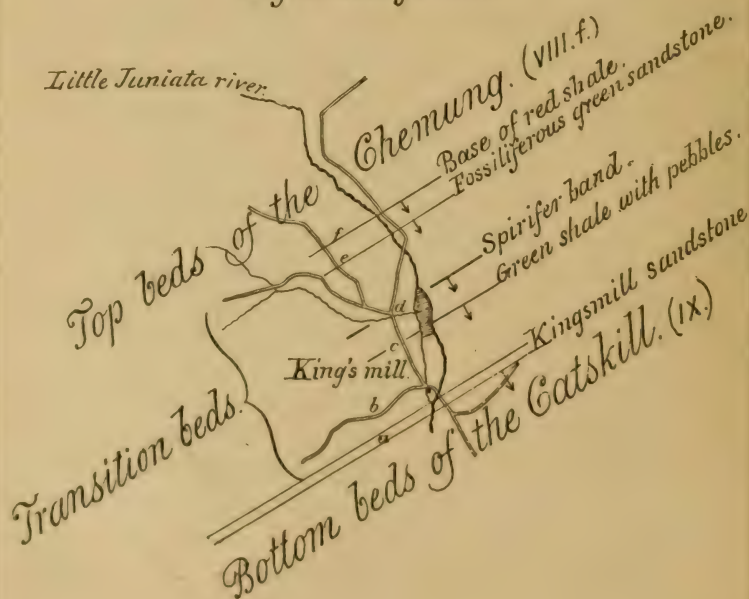 Little Juniata river.
Top beds of the Chemung. (VIII.f.)
Base of red shale.
Fossiliferous green sandstone.
Spirifer band.
Green shale with pebbles.
f
e
d
c
King's mill.
b
a
Transition beds.
Kingsmill sandstone
Bottom beds of the Catskill. (IX.)